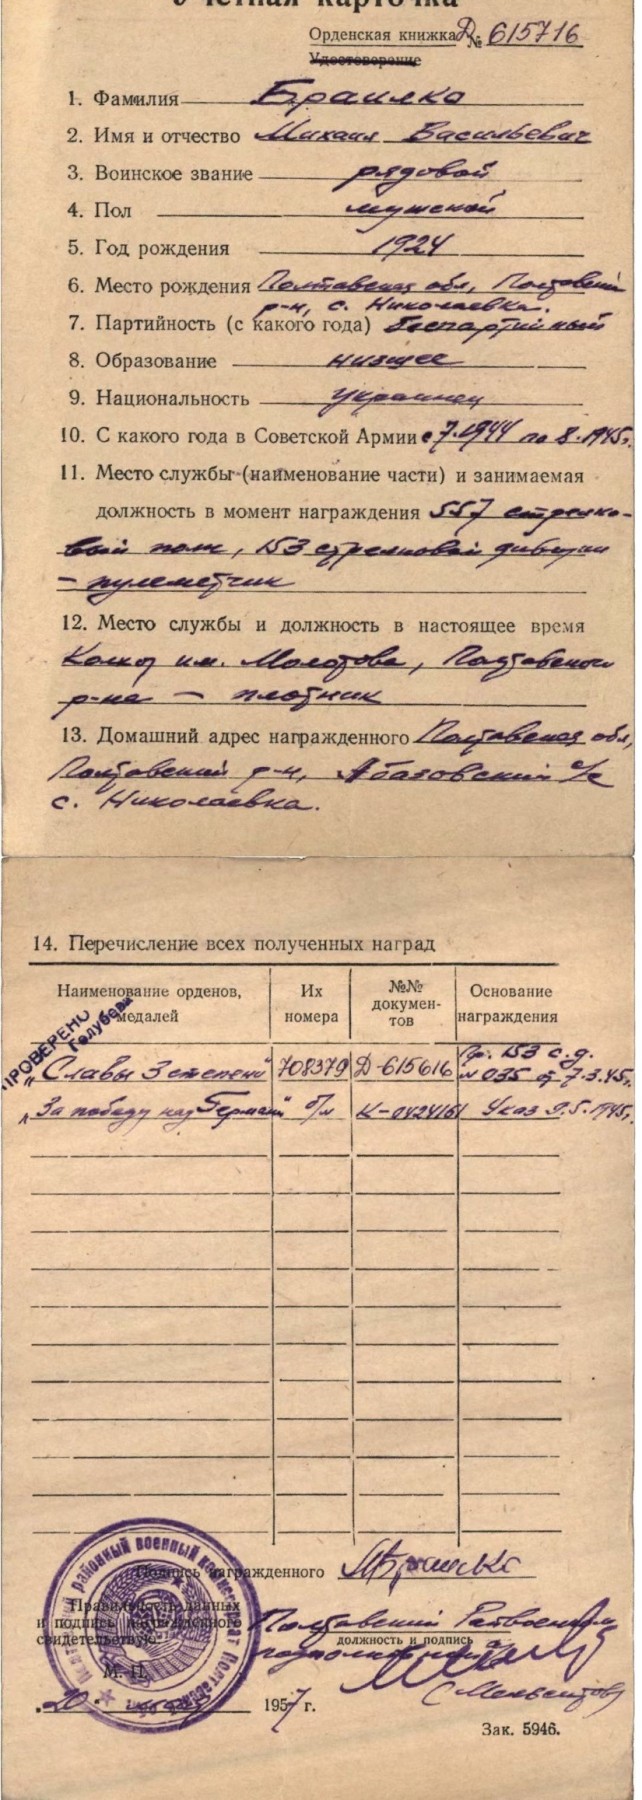 Учетная карточка
Орденская книжка Д № 615716
Удостоверение
1. Фамилия Браилко
2. Имя и отчество Михаил Васильевич
3. Воинское звание рядовой
4. Пол мужской
5. Год рождения 1924
6. Место рождения Полтавская обл, Полтавский
р-н, с. Николаевка.
7. Партийность (с какого года) беспартийный
8. Образование низшее
9. Национальность украинец
10. С какого года в Советской Армии с 7.1944 по 8.1945г.
11. Место службы (наименование части) и занимаемая
должность в момент награждения 557 стрелко-
вый полк, 153 стрелковой дивизии
– пулеметчик
12. Место службы и должность в настоящее время
Колхоз им. Молотова, Полтавского
р-на – плотник
13. Домашний адрес награжденного Полтавская обл,
Полтавский р-н, Абазовский с/с
с. Николаевка.
14. Перечисление всех полученных наград
Наименование орденов, медалей
Их номера
№№ докумен-тов
Основание награждения
ПРОВЕРЕНО
„Славы 3 степени" 708379 Д-615616 Пр. 153 с.д.
№ 035 от 7.3.45г.
„За победу над Германией" б/н К-0424161 Указ 9.5.1945г.
Подпись награжденного МБраилко
Правильность данных
и подпись награжденного
свидетельствую:
Полтавский Райвоенком
должность и подпись
подполковник
М. П.
20 1957 г.
Зак. 5946.
районный военный комиссариат